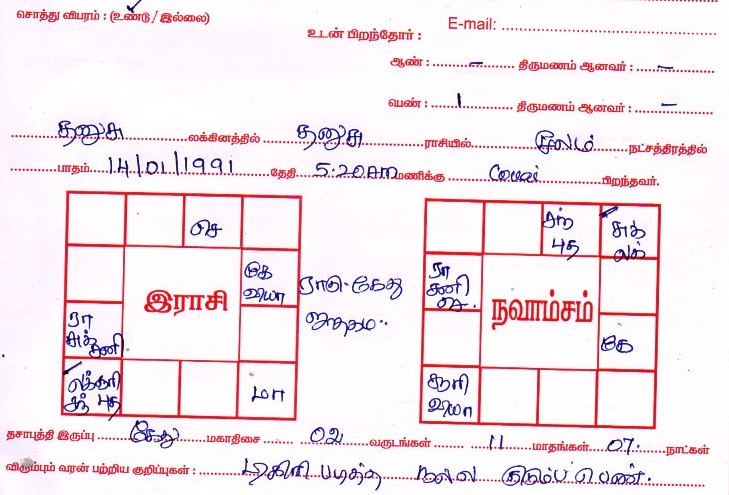 சொத்து விபரம் : (உண்டு / இல்லை)
E-mail:
உடன் பிறந்தோர் :
ஆண் : – திருமணம் ஆனவர் : –
பெண் : 1 திருமணம் ஆனவர் : –
தனுசு லக்கினத்தில் தனுசு ராசியில் மூலம் நட்சத்திரத்தில்
பாதம் 14/01/1991 தேதி 5.20 AM மணிக்கு பிறந்தவர்.
செ
கே வியா
இராசி
ரா சுக் சனி
சந் புத
மா
ராகு - கேது
ஜாதகம்
சந் புத
சுக் லக்
ரா சனி செ
நவாம்சம்
கே
சூரி வியா
தசாபுத்தி இருப்பு கேது மகாதிசை 02 வருடங்கள் 11 மாதங்கள் 07 நாட்கள்
விரும்பும் வரன் பற்றிய குறிப்புகள் : டிகிரி படித்த நல்ல குடும்ப பெண்.